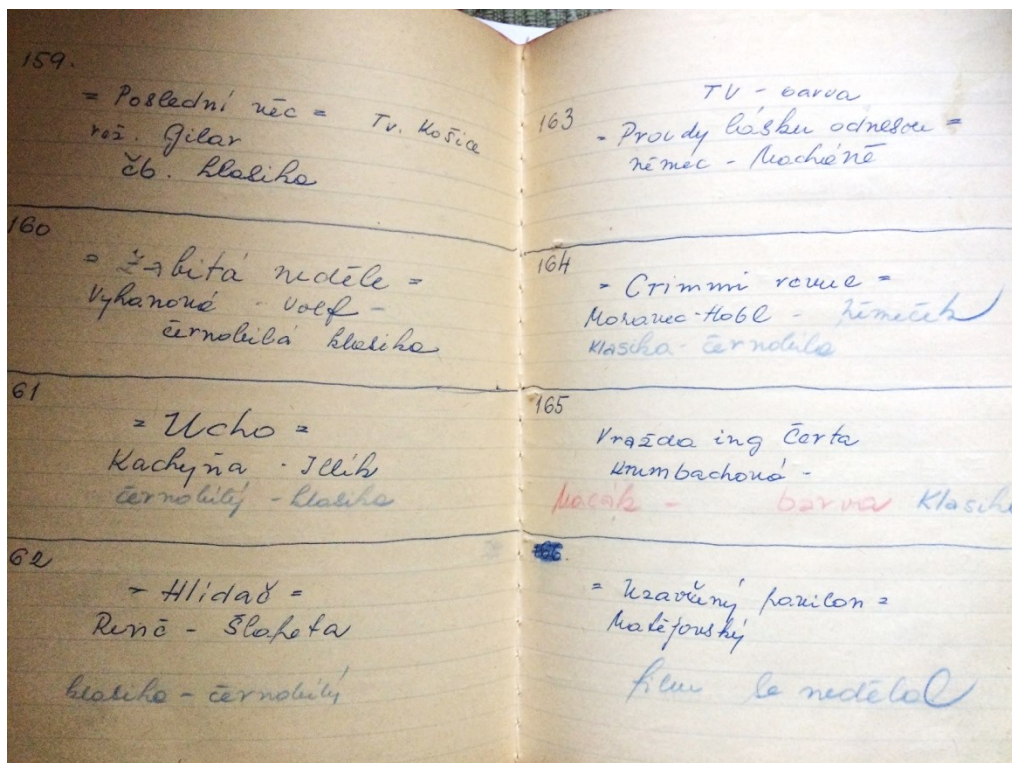 159.
= Poslední věc =
Tv. Košice
rež. Gilar
čb. klasika
160
= Zabitá neděle =
Vyhanová - Volf -
černobílá klasika
61
= Ucho =
Kachyňa - Illík
černobílý - klasika
62
- Hlídač =
Renč - Šlapeta
klasika - černobílý
TV - barva
163
= Proudy lásku odnesou =
němec - Macháně
164
= Crimmi revue =
Moravec - Hobl - Němeček
Klasika - černobílá
165
Vražda ing Čerta
Krumbachová -
Macák - barva Klasika
166.
= Uzavřený pavilon =
Matějovský
film se nedělal